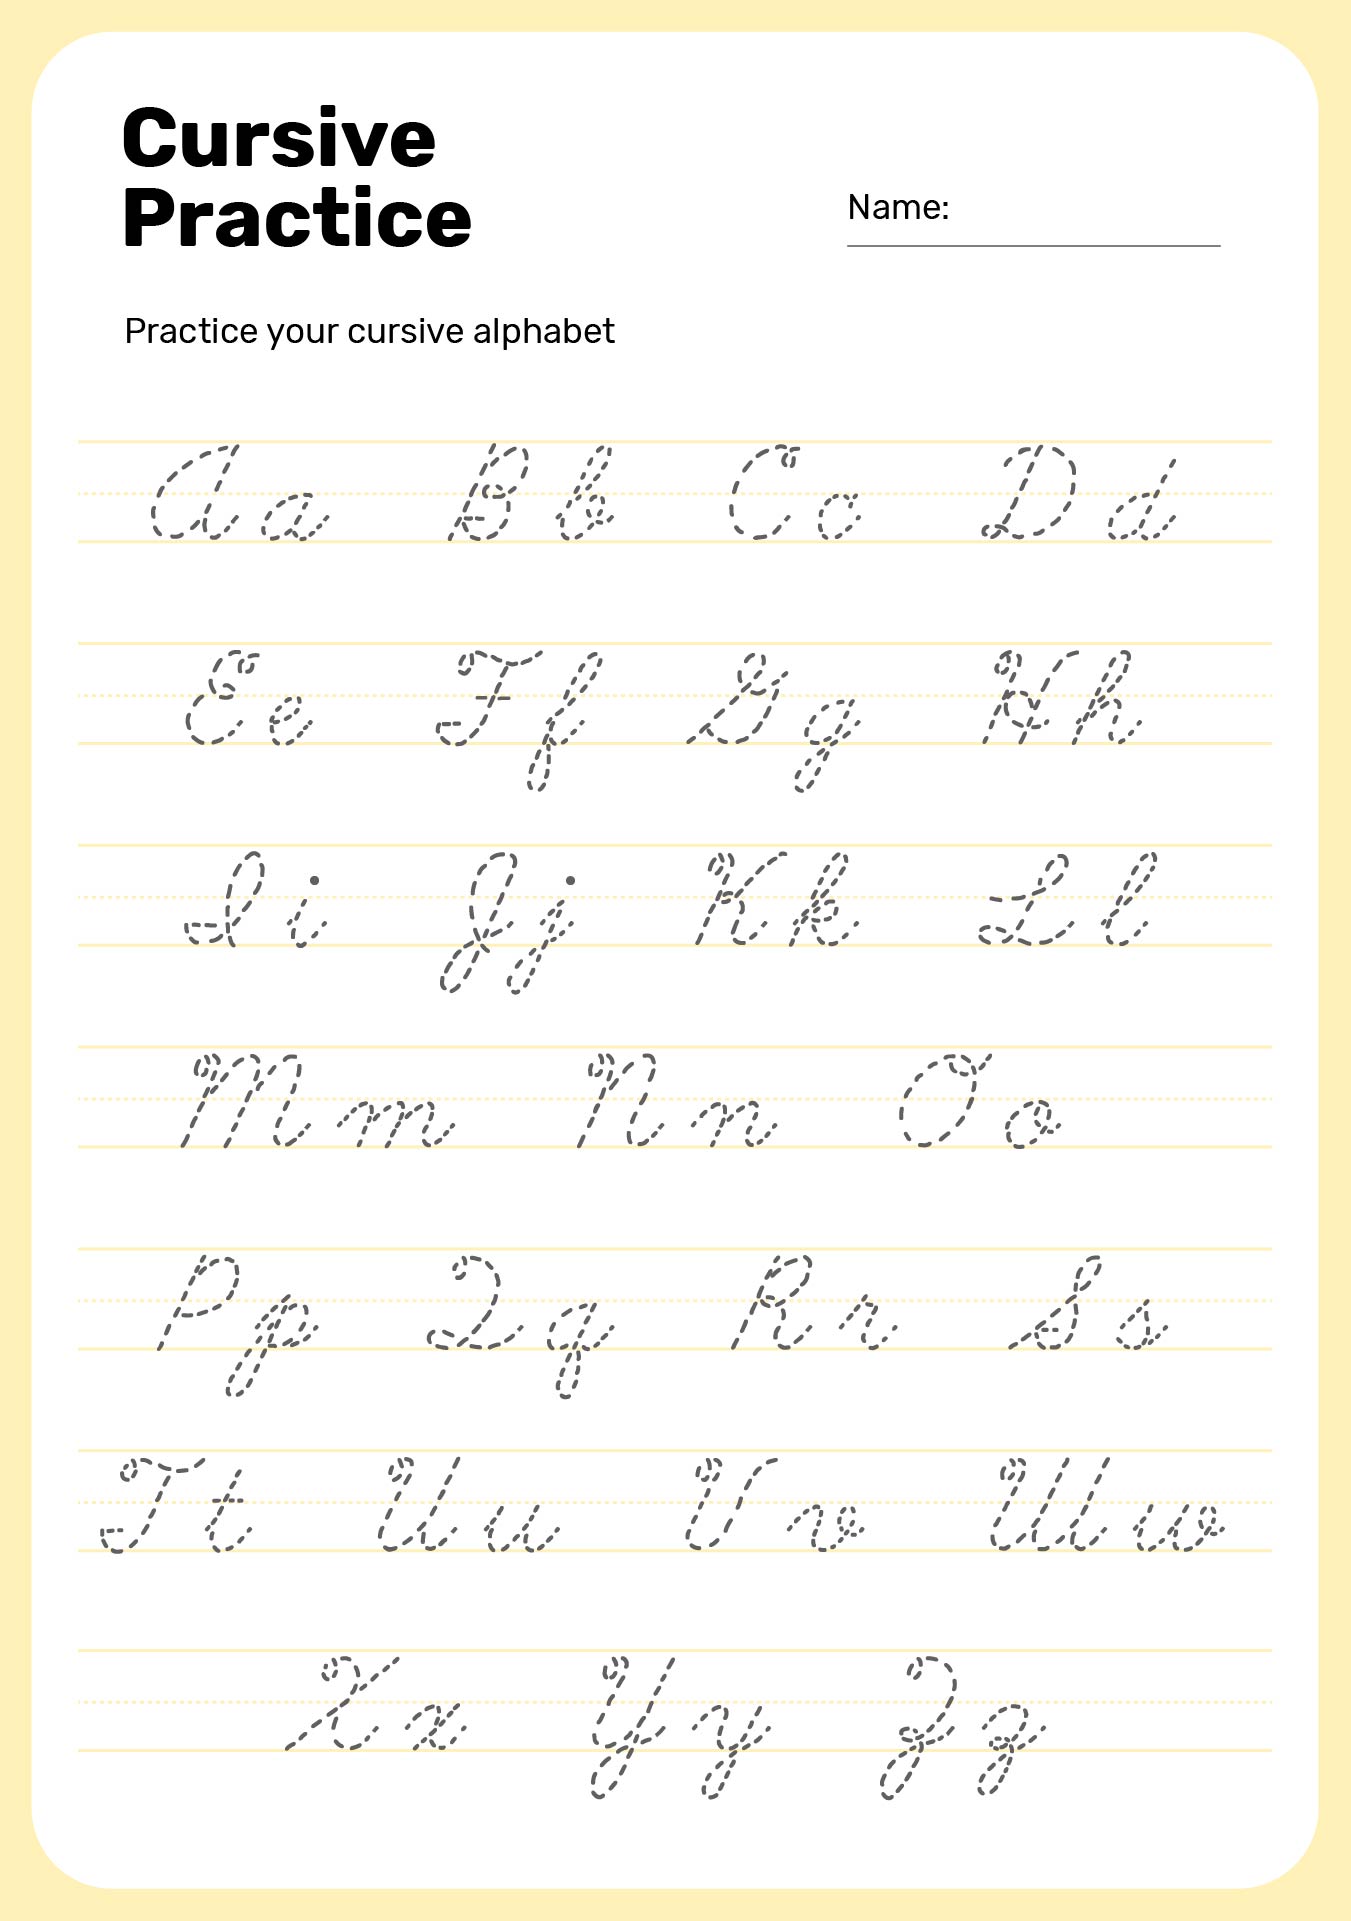 Cursive
Practice
Name:
Practice your cursive alphabet
A a B b C c D d
E e F f G g H h
I i J j K k L l
M m N n O o
P p Q q R r S s
T t U u V v W w
X x Y y Z z